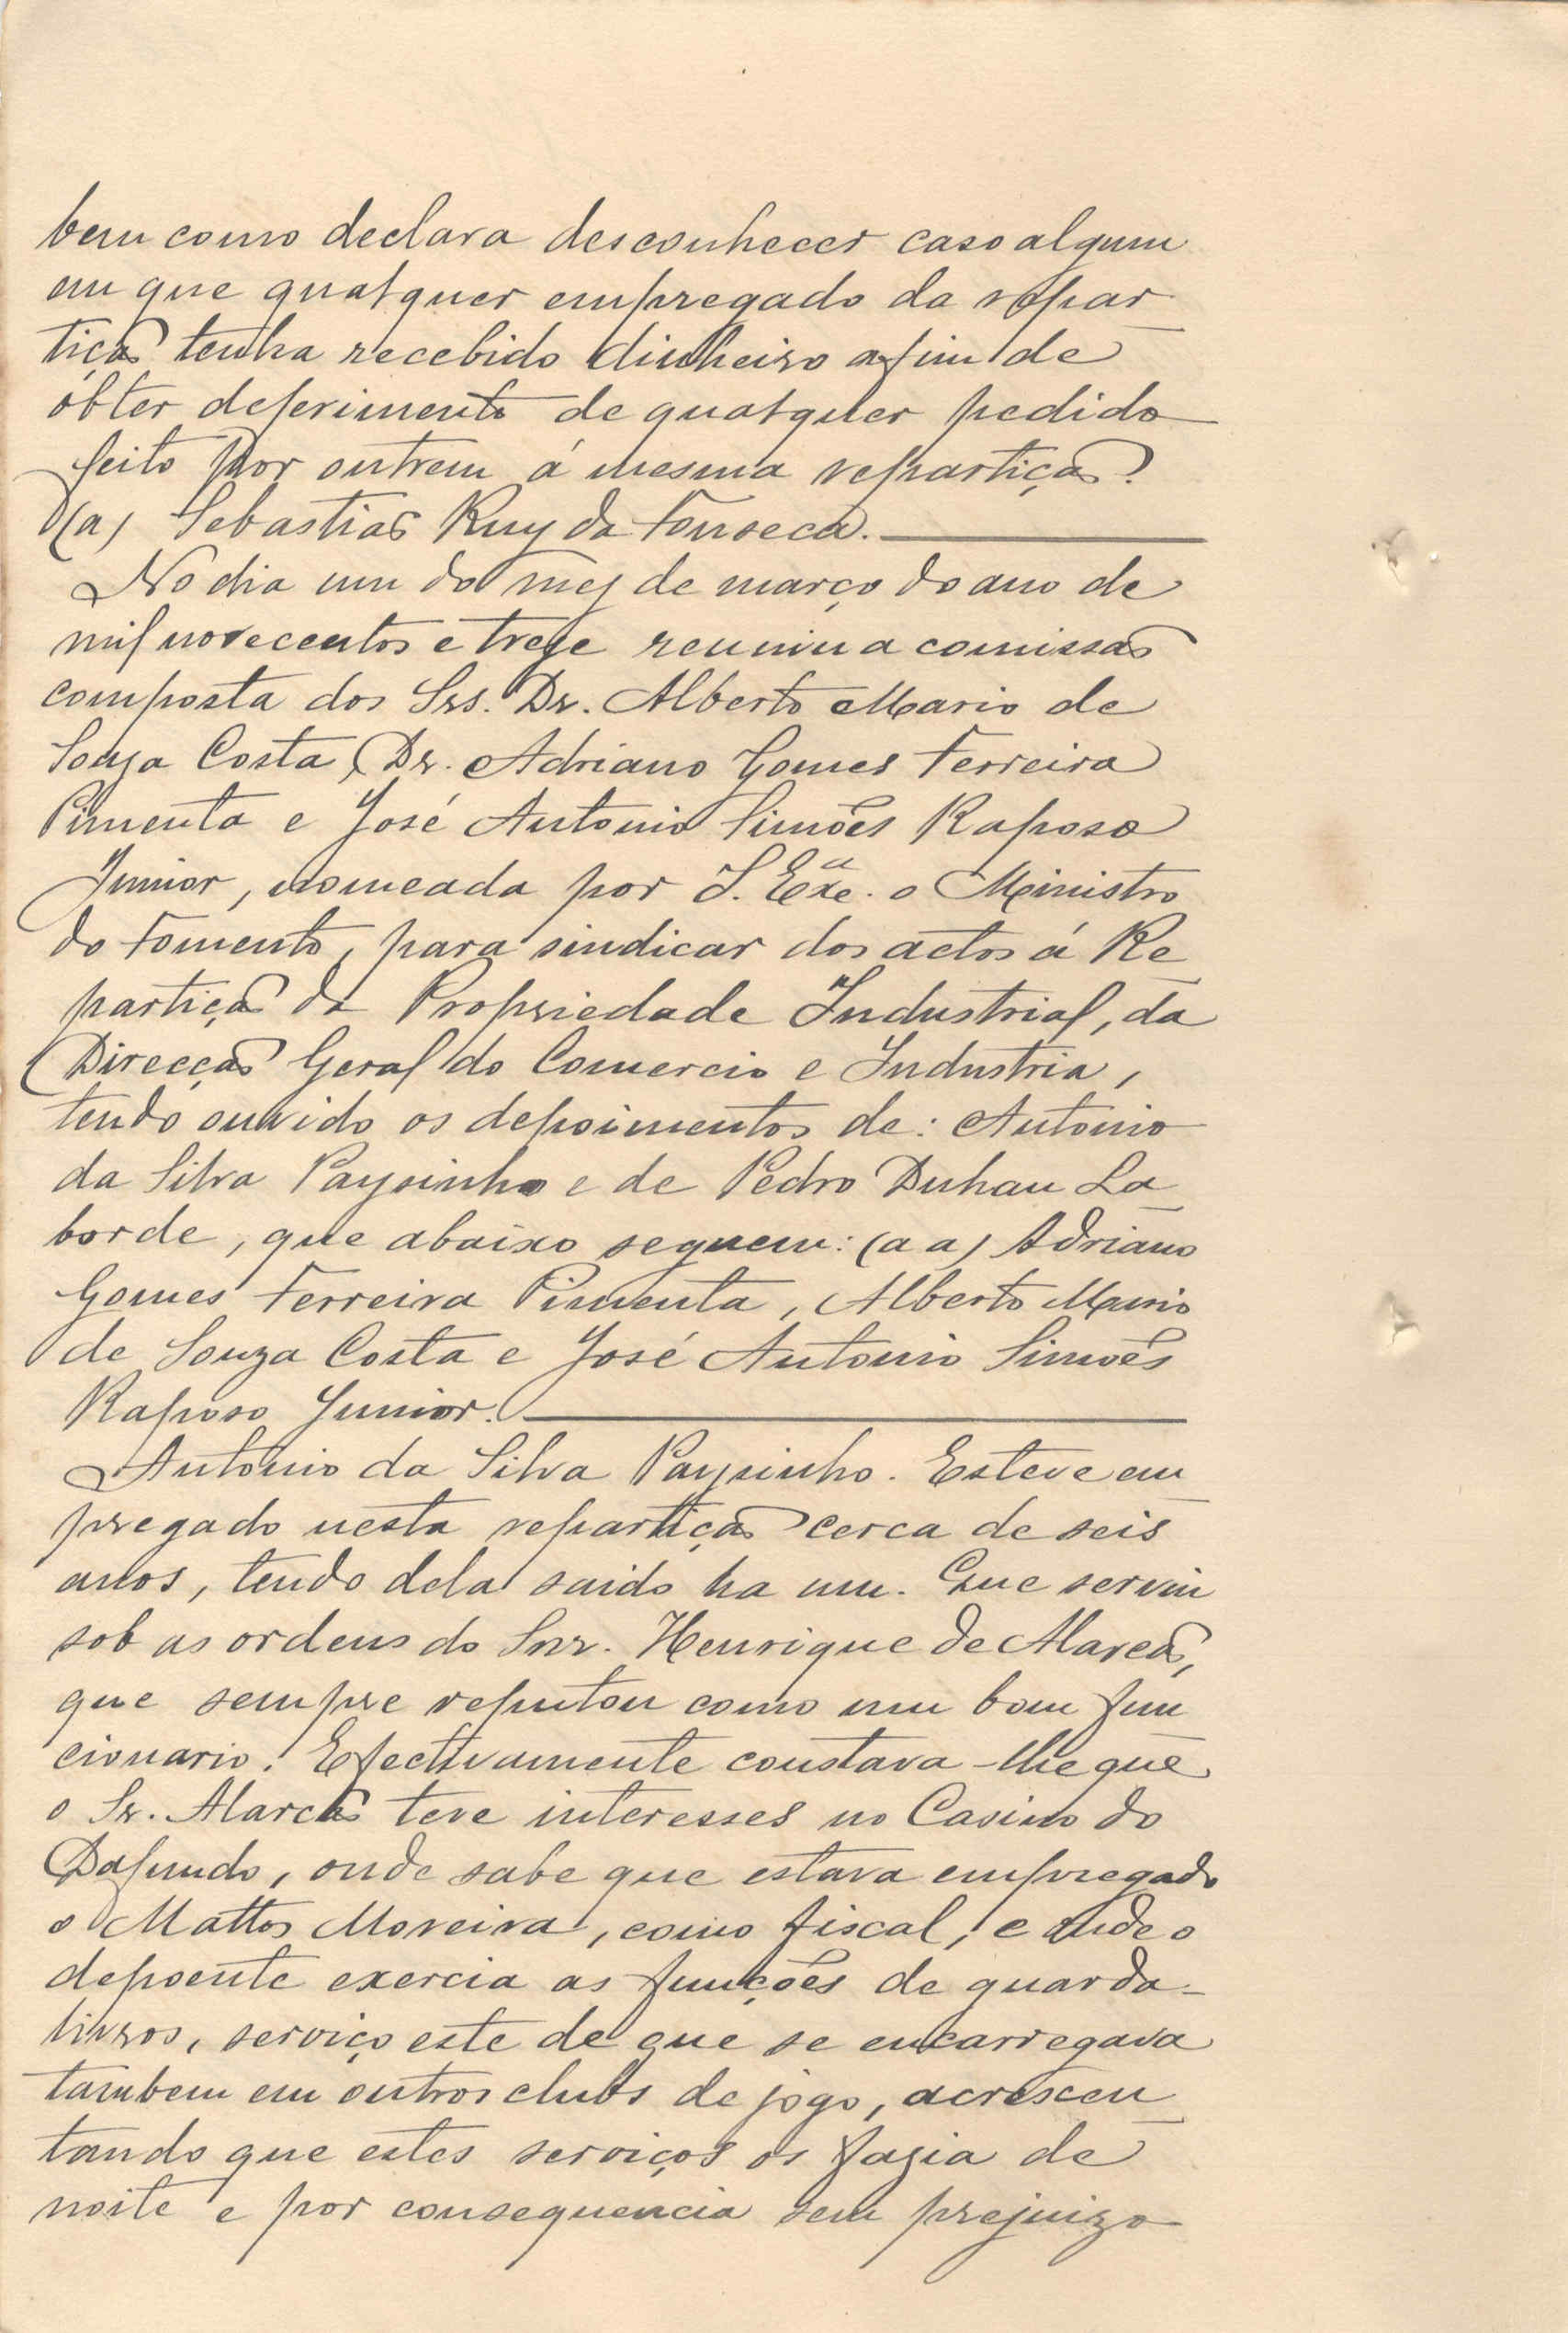 bem como declara desconhecer caso algum
em que qualquer empregado da repar
tição tenha recebido dinheiro afim de
obter deferimento de qualquer pedido
feito por outrem á mesma repartição.
(a) Sebastião Ruy da Fonseca.
No dia um do mez de março do ano de
mil novecentos e treze reuniu a comissão
composta dos Srs. Dr. Alberto Mario de
Souza Costa, Dr. Adriano Gomes Ferreira
Pimenta e José Antonio Simões Raposo
Junior, nomeada por S. Exᵃ. o Ministro
do Fomento, para sindicar dos actos á Re
partição da Propriedade Industrial, da
Direcção Geral do Comercio e Industria,
tendo ouvido os depoimentos de: Antonio
da Silva Paysinho e de Pedro Duhau La
borde, que abaixo seguem: (a a) Adriano
Gomes Ferreira Pimenta, Alberto Mario
de Souza Costa e José Antonio Simões
Raposo Junior.
Antonio da Silva Paysinho. Esteve em
pregado nesta repartição cerca de seis
anos, tendo dela saido ha um. Que serviu
sob as ordens do Snr. Henrique de Alarcão,
que sempre reputou como um bom fun
cionario. Efectivamente constava-lhe que
o Sr. Alarcão teve interesses no Casino do
Dafundo, onde sabe que estava empregado
o Mattos Moreira, como fiscal, e onde o
depoente exercia as funções de guarda-
livros, serviço este de que se encarregava
tambem em outros clubs de jogo, acrescen
tando que estes serviços os fazia de
noite e por consequencia sem prejuizo